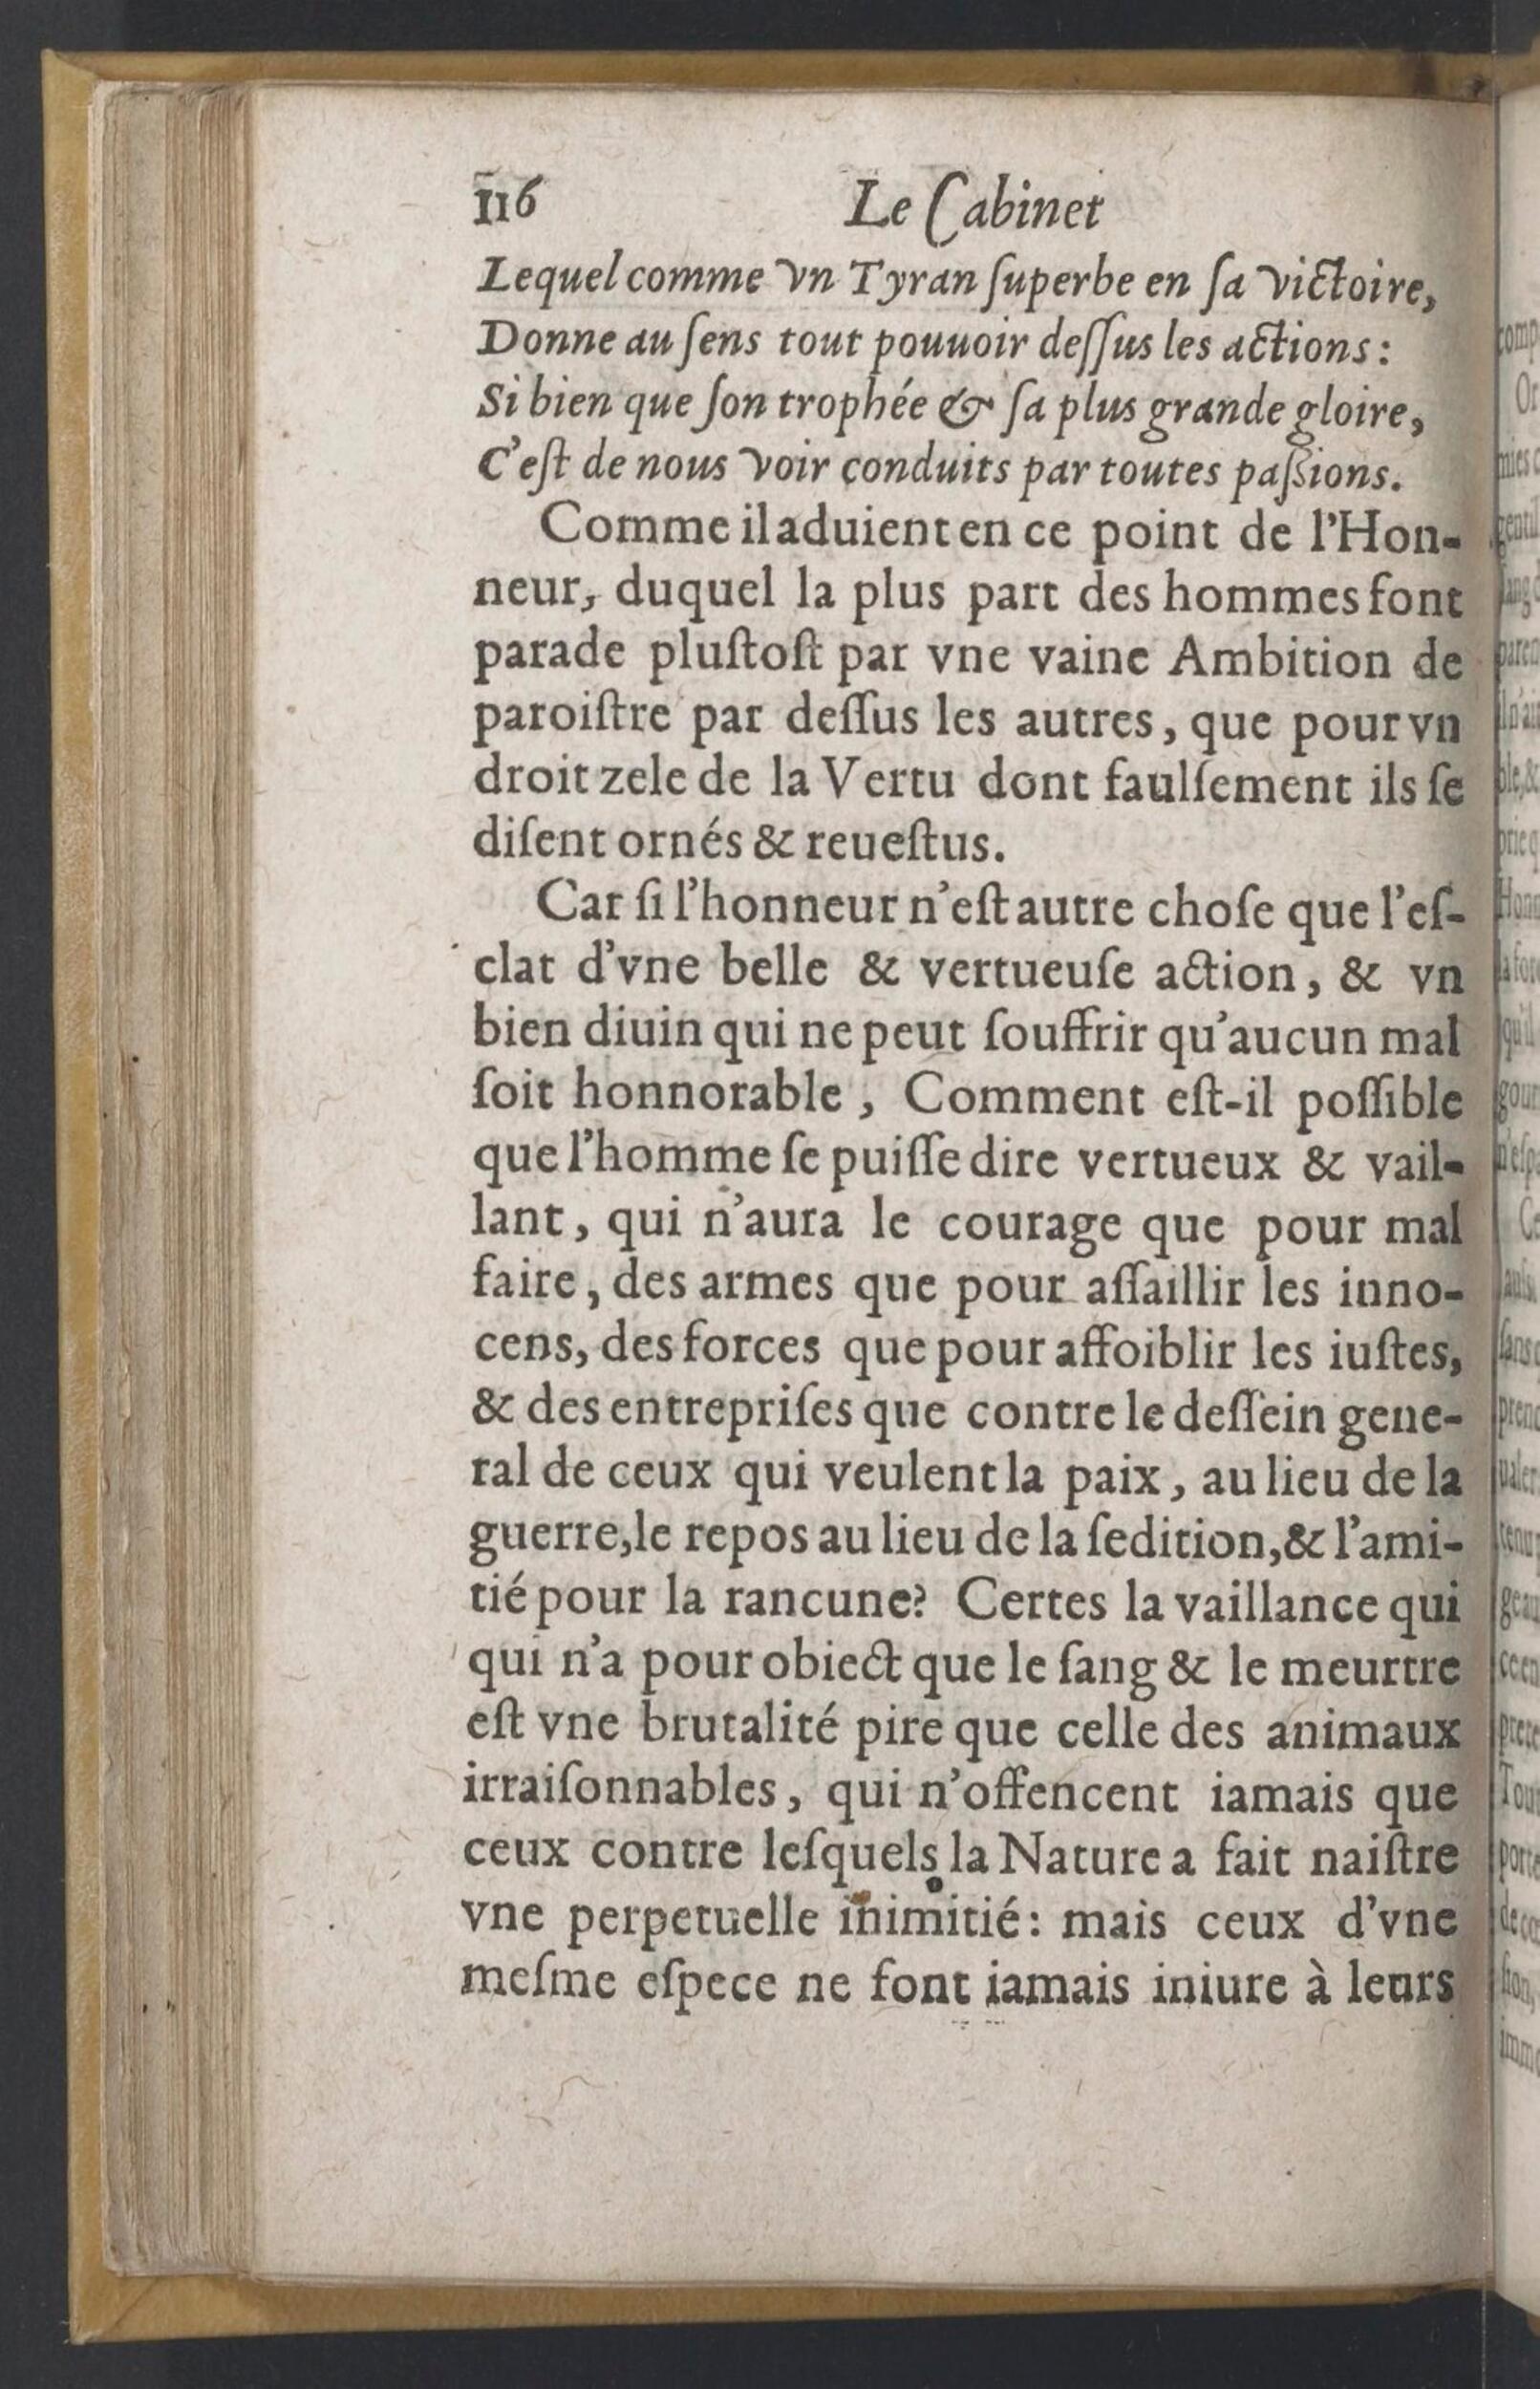 116 Le Cabinet
Lequel comme vn Tyran ſuperbe en ſa victoire,
Donne au ſens tout pouuoir deſſus les actions:
Si bien que ſon trophée & ſa plus grande gloire,
C'eſt de nous voir conduits par toutes paſsions.
Comme il aduient en ce point de l'Hon-
neur, duquel la plus part des hommes font
parade pluſtoſt par vne vaine Ambition de
paroiſtre par deſſus les autres, que pour vn
droit zele de la Vertu dont faulſement ils ſe
diſent ornés & reueſtus.
Car ſi l'honneur n'eſt autre choſe que l'eſ-
clat d'vne belle & vertueuſe action, & vn
bien diuin qui ne peut ſouffrir qu'aucun mal
ſoit honnorable, Comment eſt-il poſſible
que l'homme ſe puiſſe dire vertueux & vail-
lant, qui n'aura le courage que pour mal
faire, des armes que pour aſſaillir les inno-
cens, des forces que pour affoiblir les iuſtes,
& des entrepriſes que contre le deſſein gene-
ral de ceux qui veulent la paix, au lieu de la
guerre, le repos au lieu de la ſedition, & l'ami-
tié pour la rancune? Certes la vaillance qui
qui n'a pour obiect que le ſang & le meurtre
eſt vne brutalité pire que celle des animaux
irraiſonnables, qui n'offencent iamais que
ceux contre leſquels la Nature a fait naiſtre
vne perpetuelle inimitié: mais ceux d'vne
meſme eſpece ne font iamais iniure à leurs